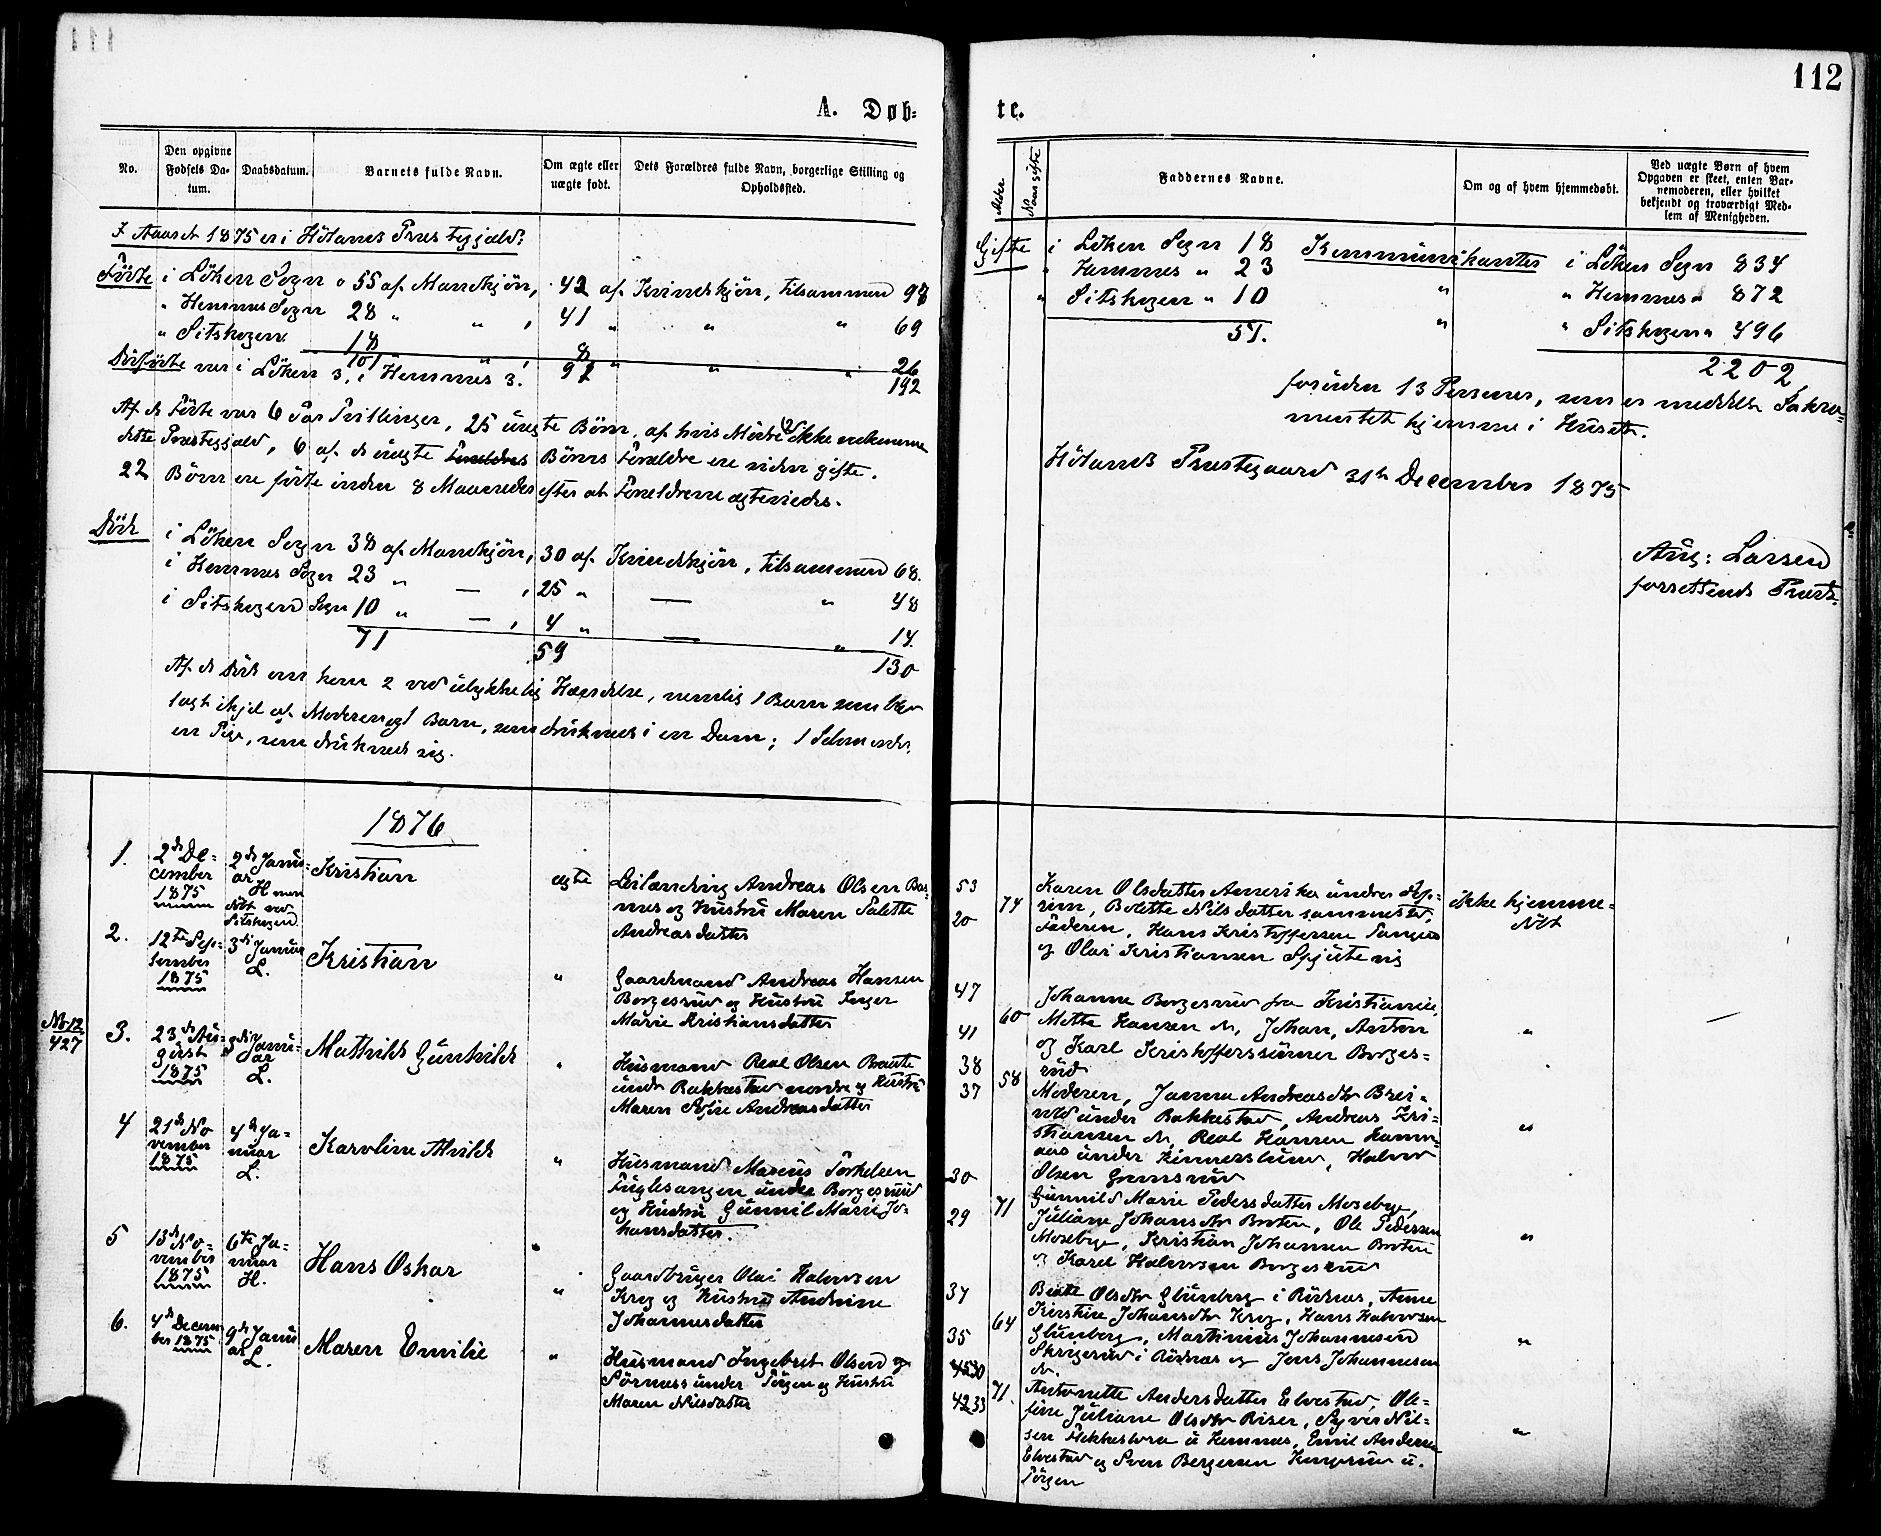 112
A. Døb-
te.
No.
Den opgivne Fødsels Da-
tum.
Daabsdatum.
Barnets fulde Navn.
Om ægte eller
uægte født.
Dets Forældres fulde Navn, borgerlige Stilling og
Opholdssted.
Faddernes Navne.
Om og af hvem hjemmedøbt.
Ved uægte Børn af hvem
Opgaven er skeet, enten Bar-
nemoderen, eller hvilket
bekjendt og troværdigt Med-
lem af Menigheden.
I Aaret 1875 er i Hølands Præstegjæld:
Födte i Løken Sogn 55 af Mandkjøn, 42 af Kvindekjøn, tilsammen 97
" Hemnes Sogn 28 " " , 41 " " " 69
" Sitskogen 18 " , 8 " " " 26
101 92 192
Dödfödte var i Løken 3, i Hemnes 3.
Af de Födte var 6 Par Tvillinger, 25 uægte Börn, af hvis Mödre 2 ikke
dette Præstegjæld, 6 af de uægte Börns Forældre ere siden gifte.
22 Börn ere födte inden 8 Maaneder efter at Forældrene ægteviedes.
Döde i Løken Sogn 38 af Mandkjøn, 30 af Kvindekjøn, tilsammen 68.
i Hemnes Sogn 23 " — , 25 " — " 48
i Sitskogen Sogn 10 " — , 4 " — " 14.
71 59 130
Af de Döde ere 2 ved ulykkelig Hændelse, nemlig 1 Barn som blev
lagt ihjel af Moderen og 1 Barn, som druknede i en Dam; 1
en Pige, som druknede sig.
Gifte i Løken Sogn 18
" Hemnes " 23
" Sitskogen " 10
51.
Kommunikanter i Løken Sogn 834
" " Hemnes " 872
" " Sitskogen " 496
2202
foruden 13 Personer, som er meddelt Sakra-
mentet hjemme i Huset.
Hölands Præstegaard 31te December 1875
Aug: Larsen
forrettende Præst.
1876
1.
2de De-
cember
1875
2de Janu-
ar
H men
döbt ved
Sitskogen.
Kristian
ægte
Leilænding Andreas Olsen Bos-
nes og Hustru Maren Palette
Andreasdatter
53
74
20
Karen Olsdatter
Bolette Nilsdatter sammested,
Faderen, Hans Kristoffersen
og Olai Kristiansen
ikke hjemme-
døbt
2.
12te Sep-
tember
1875
3de Januar
L.
Kristian
"
Gaardmand Andreas Hansen
Borgesrud og Hustru Inger
Marie Kristiansdatter
47
60
41
38
Johanne Borgesrud fra Kristiania,
Mette Hansen do, Johan, Anton
og Karl Kristofferssönner Borges-
rud
"
No 12
427
3.
23de Au-
gust
1875
Janu-
ar
L.
Mathilde Gunhilde
"
Husmand Real Olsen Braate
under Bakkestad nordre og Hustru
Maren Andreasdatter
37
58
30
Moderen, Janna Andreasdtr Brei-
under Bakkestad, Andreas Kri-
stiansen do, Real Hansen
under Kinnerslund, Halvor
Olsen Grønsrud
"
4
21de No
vember
1875
4de Ja-
nuar
L.
Karoline Alvilde
"
Husmand Marius Torkelsen
Fuglesangen under Borgesrud
og Hustru Gunnil Marie Jo-
hansdatter.
29
71
Gunnild Marie Pedersdatter Moseby,
Juliane Johansdtr Braten, Ole Pedersen
Mosebye, Kristian Johansen Braten
og Karel Halvorsen Borgesrud
"
5
13de No-
vember
1875
6te Ja-
nuar
H.
Hans Oskar
"
Gaardbruger Olai Halvorsen
Krog og Hustru Andrine
Johannesdatter
37
64
35
Beate Olsdtr Glünberg i Rödnes, Anne
Kirstine Johansdtr Krog, Hans Halvorsen
Glünberg, Martinius Johannesen
i Rödnes og Jens Johannesen
do.
"
6.
4de Decem
ber 1875
9de Janu
ar L.
Maren Emilie
"
Husmand Ingebret Olsen
Sörnæss under Törgen og Hustru
Maren Nilsdatter
71.
33
Antonette Andersdatter Elvestad, Ole-
fine Juliane Olsdtr Riser, Syver Nil-
sen u Hemnes, Emil Andersen
Elvestad og Sven Bergersen u.
Törgen
"